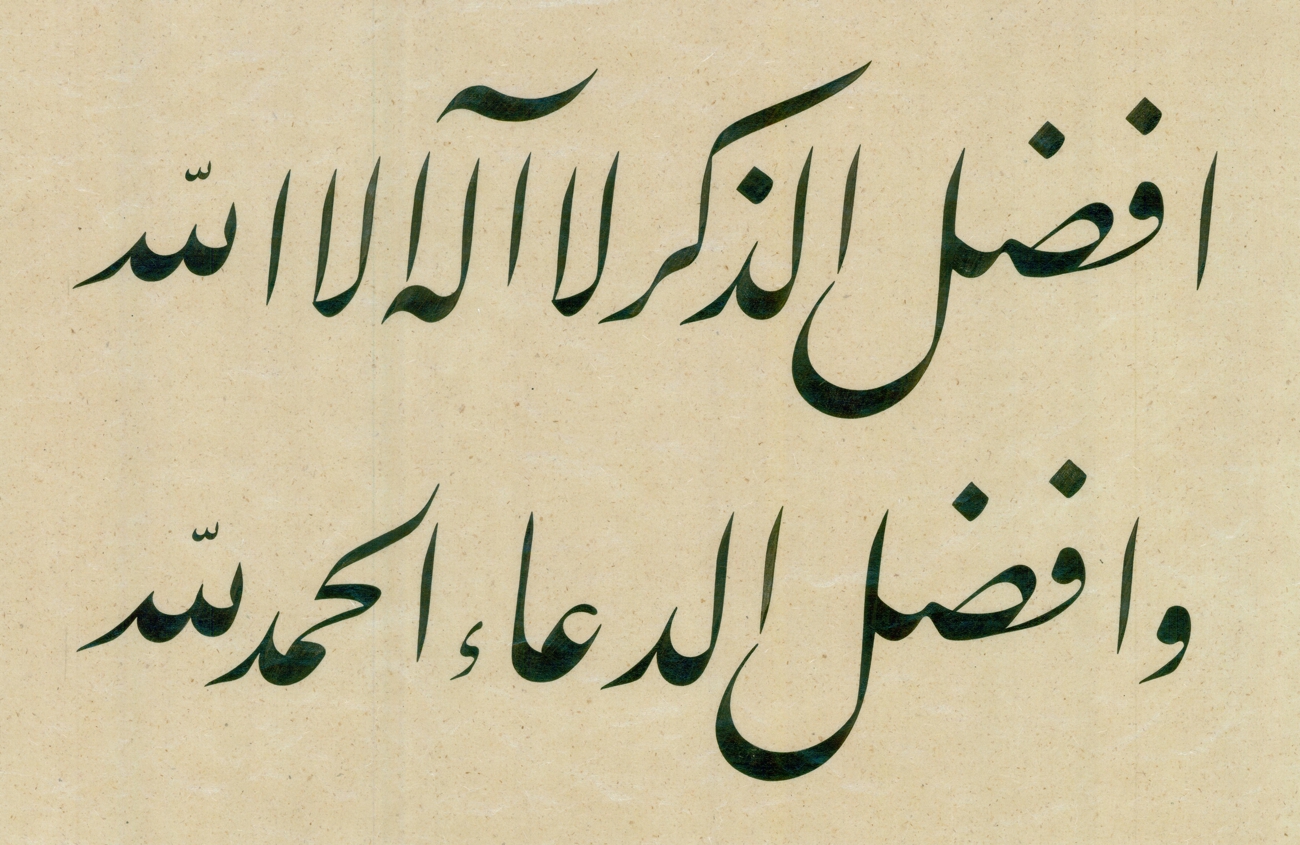 افضل الذكر لا آله الا الله
وافضل الدعاء الحمد لله